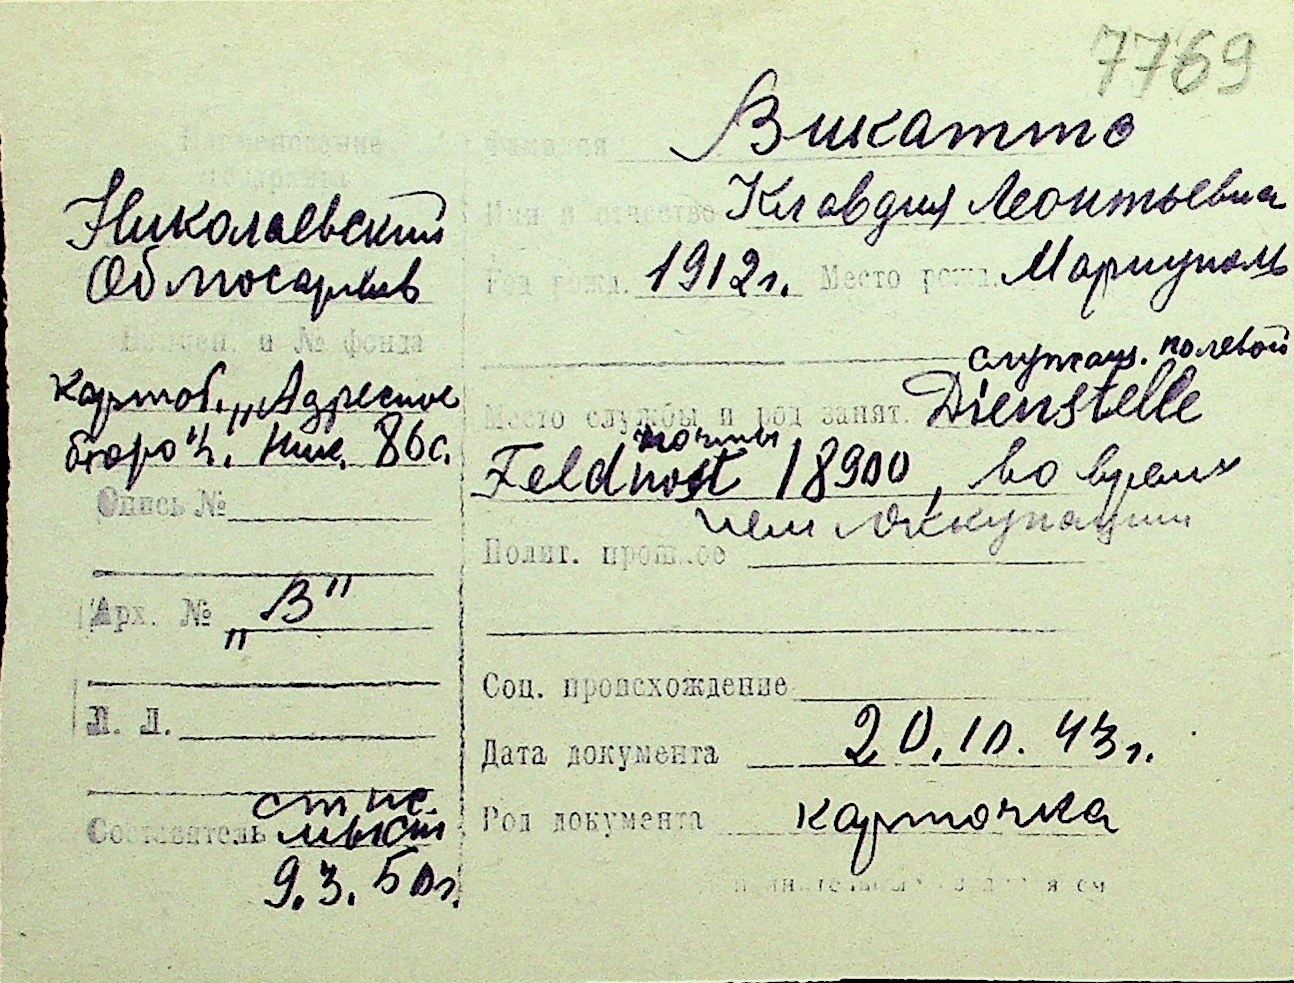 7769
Наименование
госархива
Николаевский
Облгосархив
Наимен. и № фонда
картот. „Адресное
бюро" г. Ник. 86с.
Опись №
Арх. № „В"
Л. Л.
Составитель
9.3.50г.
Фамилия Викатто
Имя и отчество Клавдия Леонтьевна
Год рожд. 1912г. Место рожд. Мариуполь
служащ. полевой
Место службы и род занят. Dienstelle
почты
Feldpost 18900, во время
нем оккупации
Полит. прошлое
Соц. происхождение
Дата документа 20.10.43г.
Род документа карточка